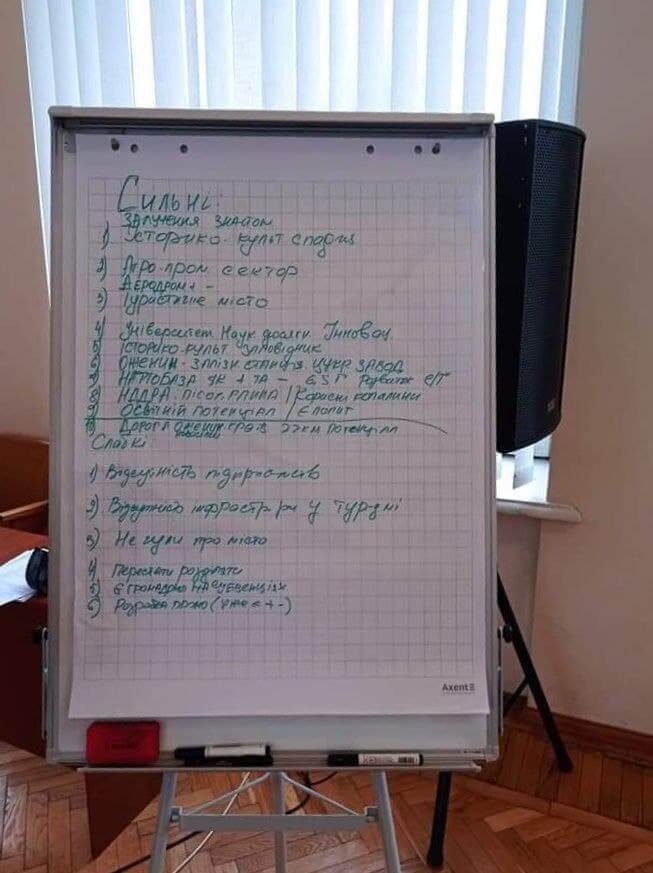 Сильні:
Залучення знатом
1) Історико-культ спадщ
2) Агро-пром. сектор
Аеродром + -
3) Туристичне місто
4) Університет. Наук дослідн. Інновац.
5) Історико-культ заповідник
6) Оженин - залізн. станція цукр завод
7) Нафтобаза як + та - Розвиток с/г
8) Надра: пісок, глина / Корисні копалини
9) Освітній потенціал /
10) Дорога Оженин 22 км потенціал
Слабкі:
1) Відсутність підприємств
2) Відсутність інфраструктури у тур-дні
3) Не чули про місто
4) Перестати роздавати
5) Є громадою на субвенціях
6) (уже є + -)
Axent